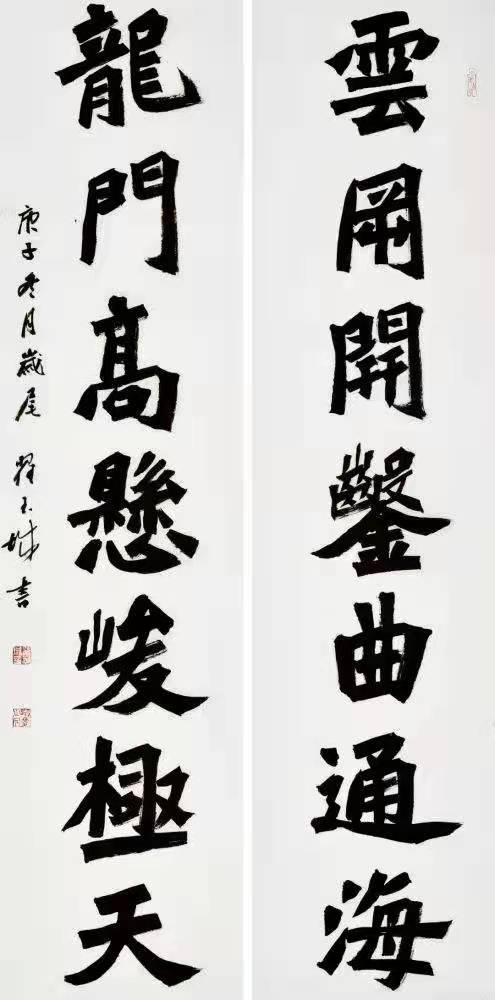 雲岡開鑿曲通海
龍門髙懸峻極天
庚子冬月歲尾 書